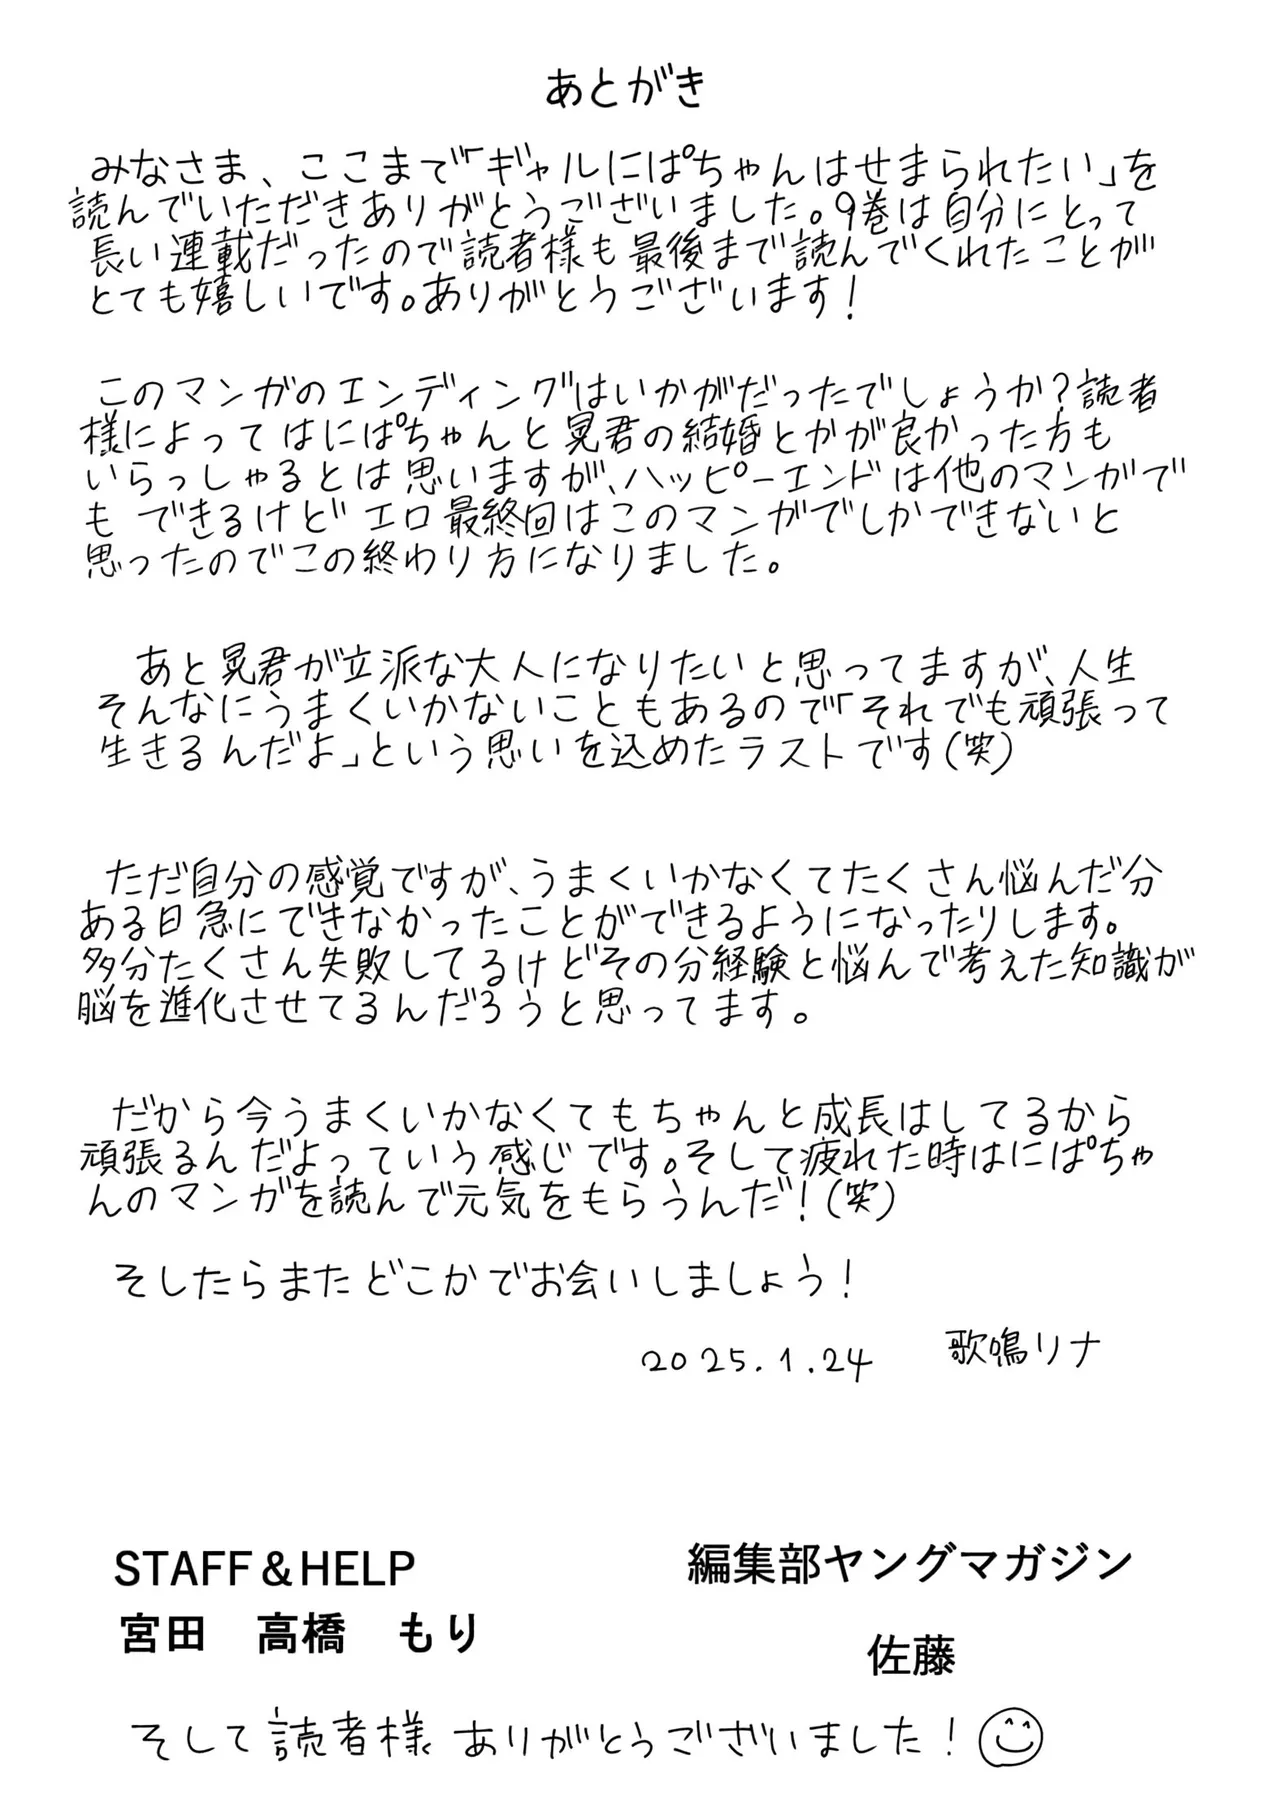 あとがき
みなさま、ここまで「ギャルにぱちゃんはせまられたい」を
読んでいただきありがとうございました。9巻は自分にとって
長い連載だったので読者様も最後まで読んでくれたことが
とても嬉しいです。ありがとうございます！
このマンガのエンディングはいかがだったでしょうか？読者
様によってはにぱちゃんと晃君の結婚とかが良かった方も
いらっしゃるとは思いますが、ハッピーエンドは他のマンガで
も できるけど エロ最終回はこのマンガでしかできないと
思ったのでこの終わり方になりました。
あと晃君が立派な大人になりたいと思ってますが、人生
そんなにうまくいかないこともあるので「それでも頑張って
生きるんだよ」という思いを込めたラストです(笑)
ただ自分の感覚ですが、うまくいかなくてたくさん悩んだ分
ある日急にできなかったことができるようになったりします。
多分たくさん失敗してるけどその分経験と悩んで考えた知識が
脳を進化させてるんだろうと思ってます。
だから今うまくいかなくてもちゃんと成長はしてるから
頑張るんだよっていう感じです。そして疲れた時はにぱちゃ
んのマンガを読んで元気をもらうんだ！(笑)
そしたらまたどこかでお会いしましょう！
2025.1.24 歌鳴リナ
STAFF＆HELP
宮田 高橋 もり
編集部ヤングマガジン
佐藤
そして読者様 ありがとうございました！